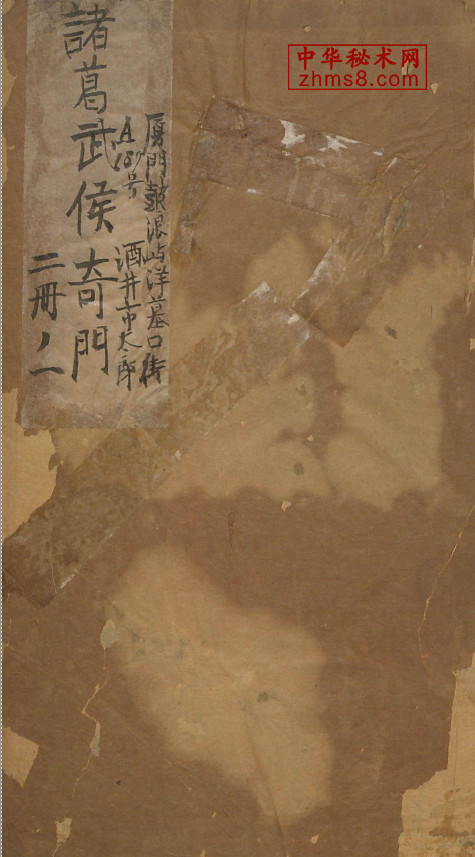 中华秘术网
zhms8.com
厦門鼓浪屿洋墓口街
A187号
酒井市太郎
諸葛武侯奇門
二冊ノ一